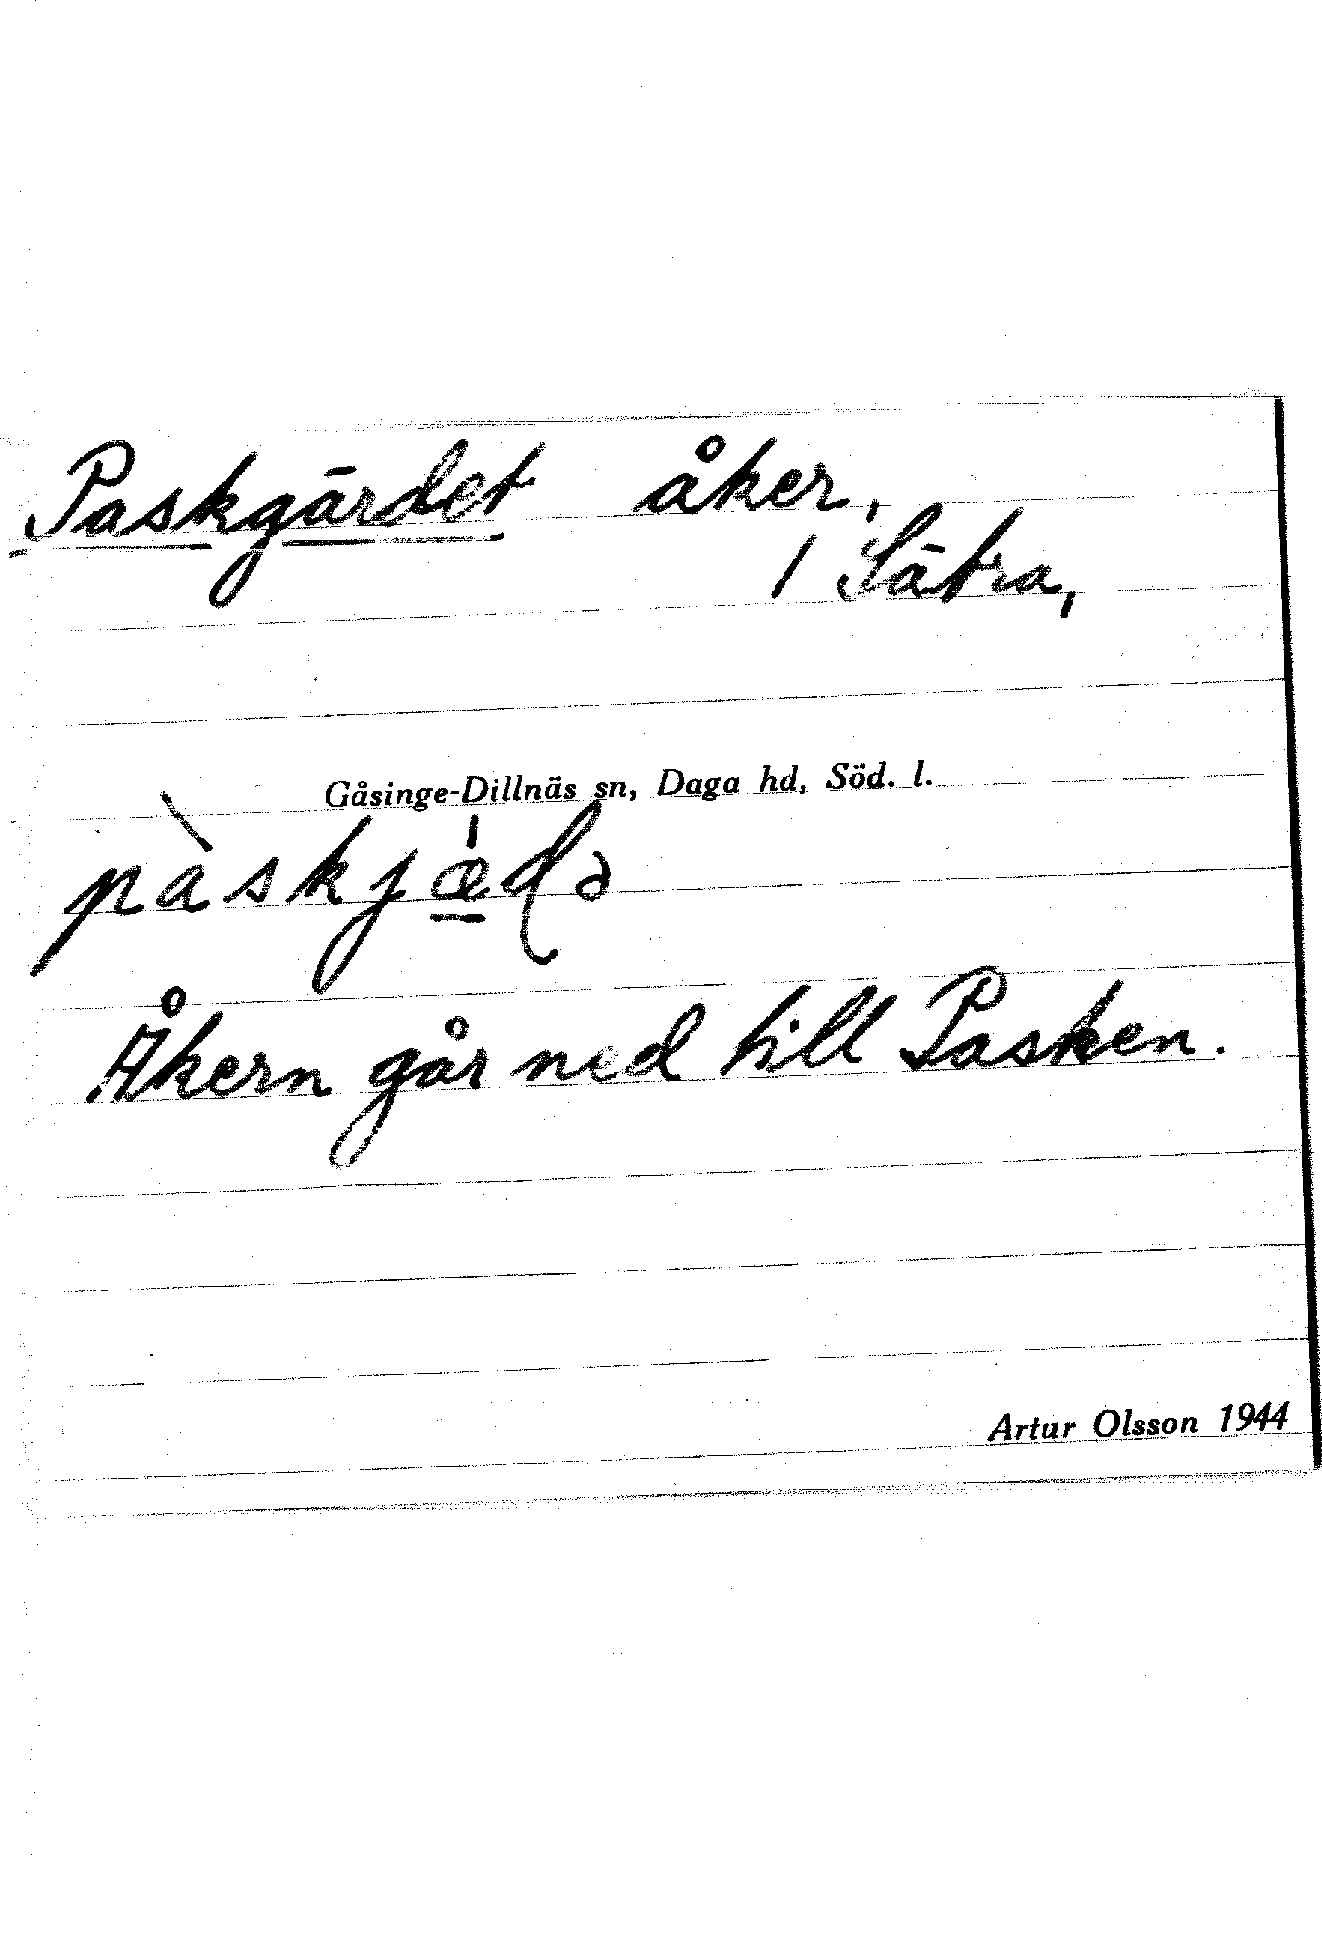 Paskgärdet åker,
1 Sätra,
Gåsinge-Dillnäs sn, Daga hd, Söd. l.
pàskjæ̲̍də
Åkern går ned till Pasken.
Artur Olsson 1944